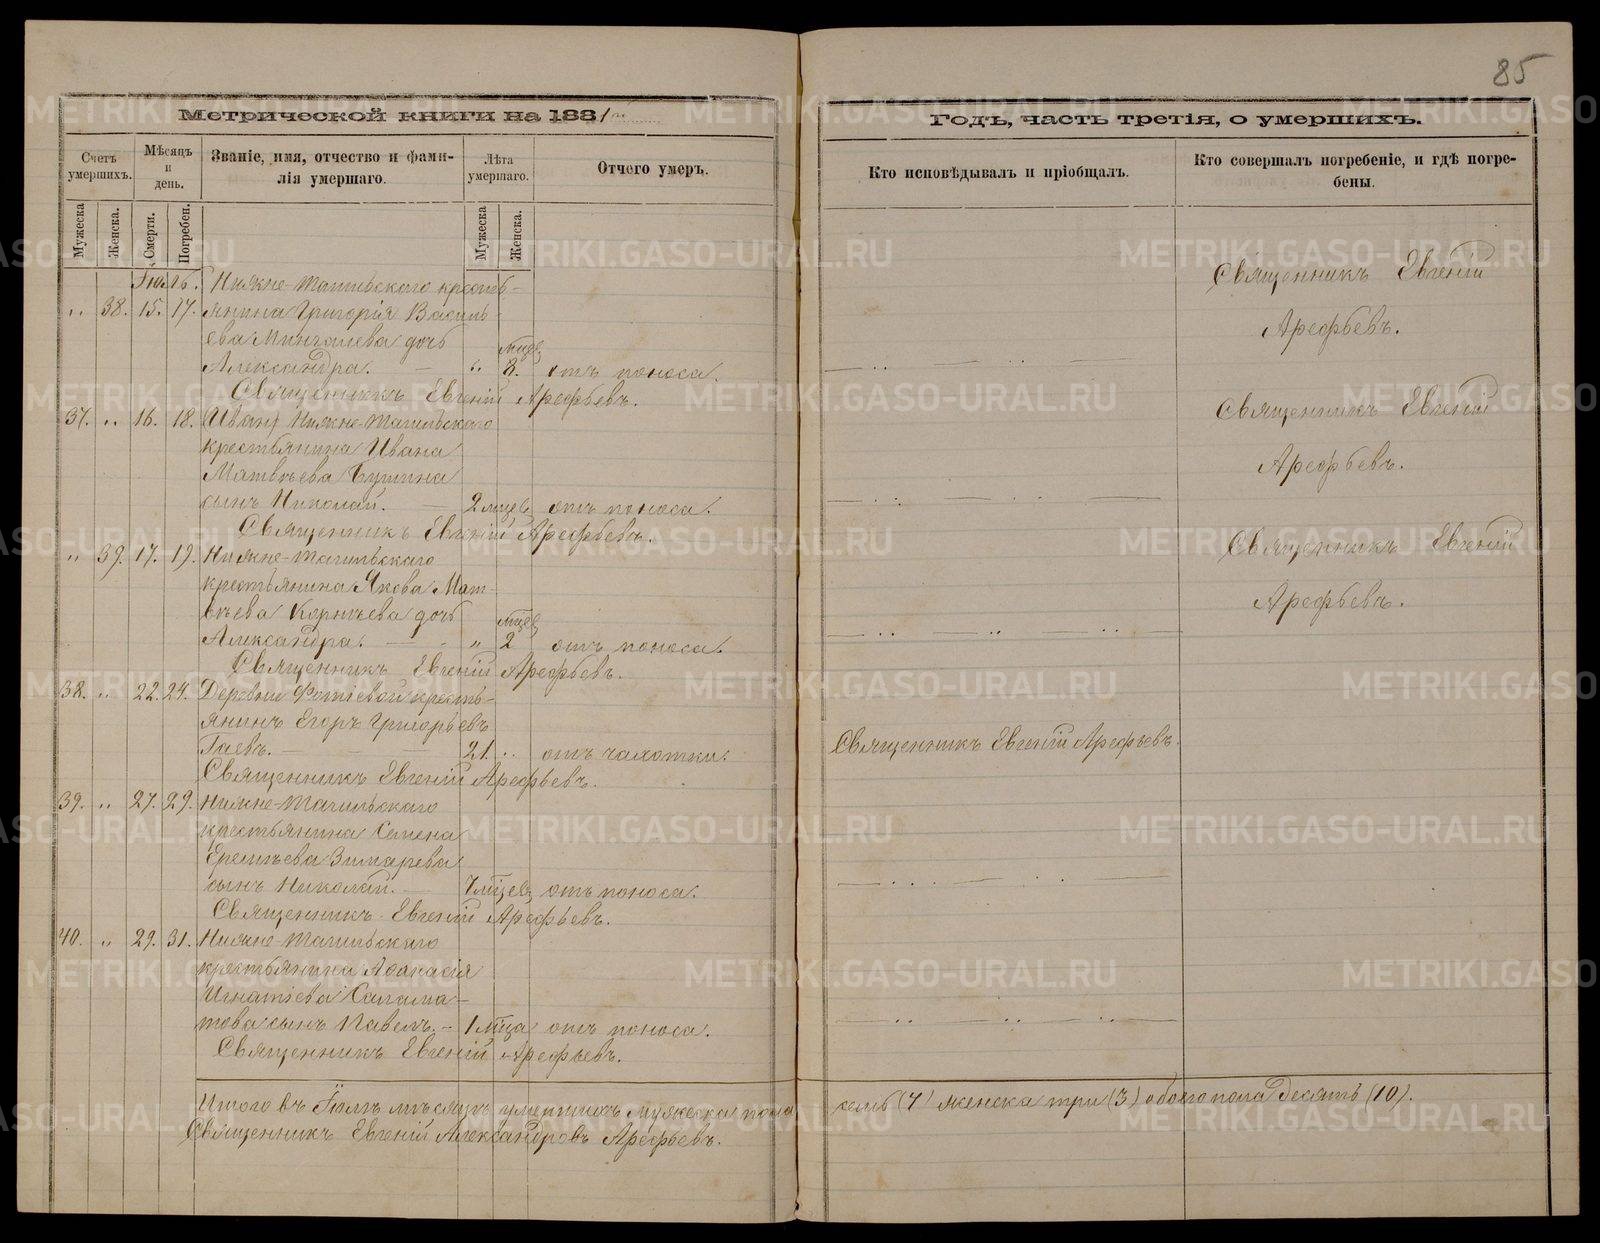 85
Метрической книги на 1881
Годъ, часть третія, о умершихъ.
Счетъ умершихъ.
Мѣсяцъ и день.
Званіе, имя, отчество и фами-
лія умершаго.
Лѣта умершаго.
Отчего умеръ.
Кто исповѣдывалъ и пріобщалъ.
Кто совершалъ погребеніе, и гдѣ погре-
бены.
Мужеска
Женска.
Смерти.
Погребен.
Мужеска
Женска.
Іюль. Нижне-Тагильскаго кресть-
„ 38. 15. 17. янина Григорія Василь-
ева Мингалева дочь мѣсц
Александра. — „ 8. отъ поноса.
Священникъ Евгеній Арефьевъ.
Священникъ Евгеній
Арефьевъ.
37. „ 16. 18. Нижне-Тагильскаго
крестьянина Ивана
Матвѣева
сынъ Николай. — 2 мѣсцев отъ поноса.
Священникъ Евгеній Арефьевъ.
Священникъ Евгеній
Арефьевъ.
„ 39. 17. 19. Нижне-Тагильскаго
крестьянина Якова Мат-
вѣева Корнѣева дочь мѣсц
Александра. — „ 2 отъ поноса.
Священникъ Евгеній Арефьевъ.
Священникъ Евгеній
Арефьевъ.
38. „ 22. 24. Деревни Фотіевой кресть-
янинъ Егоръ Григорьевъ
Гаевъ. — 21. „ отъ чахотки.
Священникъ Евгеній Арефьевъ.
Священникъ Евгеній Арефьевъ.
39. „ 27. 29. Нижне-Тагильскаго
крестьянина Семена
Еремѣева Зимарева
сынъ Николай. — 7 мѣсцев отъ поноса.
Священникъ Евгеній Арефьевъ.
40. „ 29. 31. Нижне-Тагильскаго
крестьянина Аѳанасія
Игнатіева Салама-
това сынъ Павелъ. — 1 мѣсца отъ поноса.
Священникъ Евгеній Арефьевъ.
Итого въ Іюлѣ мѣсяцѣ умершихъ мужеска пола семь (7) женска три (3) обоего пола десять (10).
Священникъ Евгеній Александровъ Арефьевъ.
METRIKI.GASO-URAL.RU